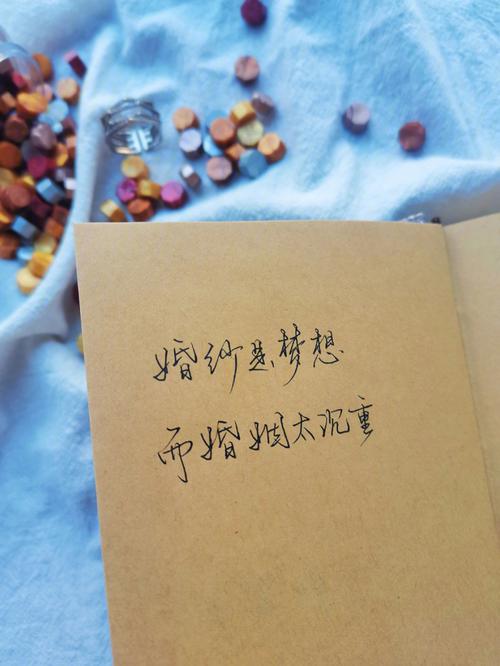 婚纱是梦想
而婚姻太沉重